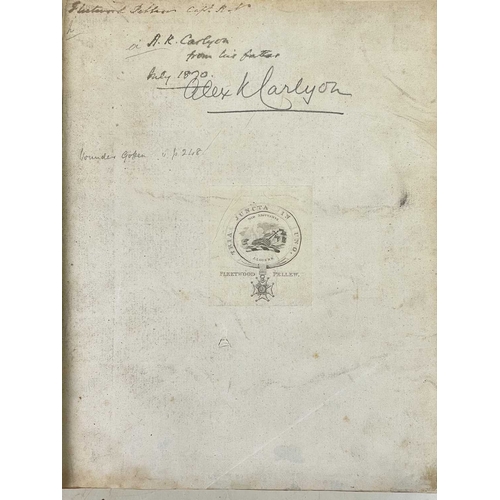 Fleetwood Pellew Capt R.N.
A. K. Carlyon
from his father
July 1870.
Alex K Carlyon
p 248.
TRIA JUNCTA IN UNO.
ALGIERS
FLEETWOOD PELLEW.